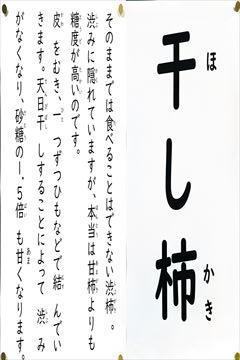 干し柿
ほ
かき
そのままでは食べることはできない渋柿。
渋みに隠れていますが、本当は甘柿よりも
糖度が高いのです。
皮をむき、一つずつひもなどで結んでい
きます。天日干しすることによって渋み
がなくなり、砂糖の1.5倍も甘くなります。